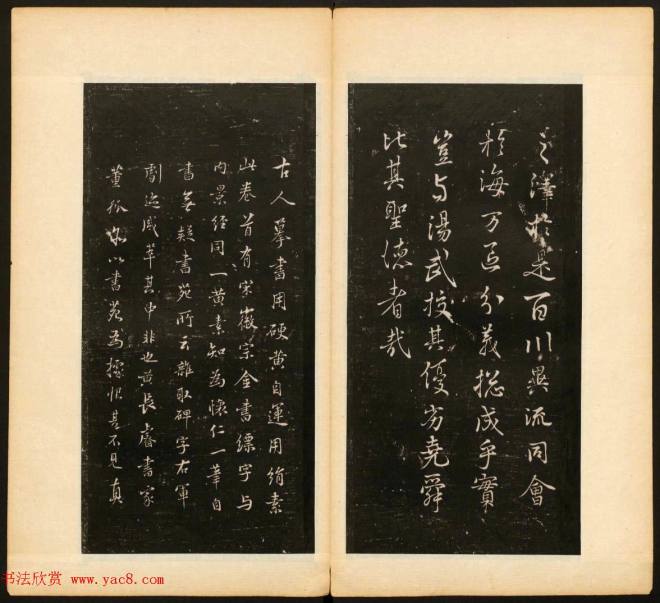 之澤於是百川異流同會
於海万區分義揔成乎實
豈与湯武挍其優劣堯舜
比其聖德者哉
古人摹書用硬黄自運用絹素
此卷首有宋徽宗金書縹字与
内景经同一黄素知为懷仁一筆自
書無疑書苑所云雜取碑字右軍
劇迹咸萃其中非也黄長睿書家
董狐亦以書苑为據恨其不見真
书法欣赏 www.yac8.com